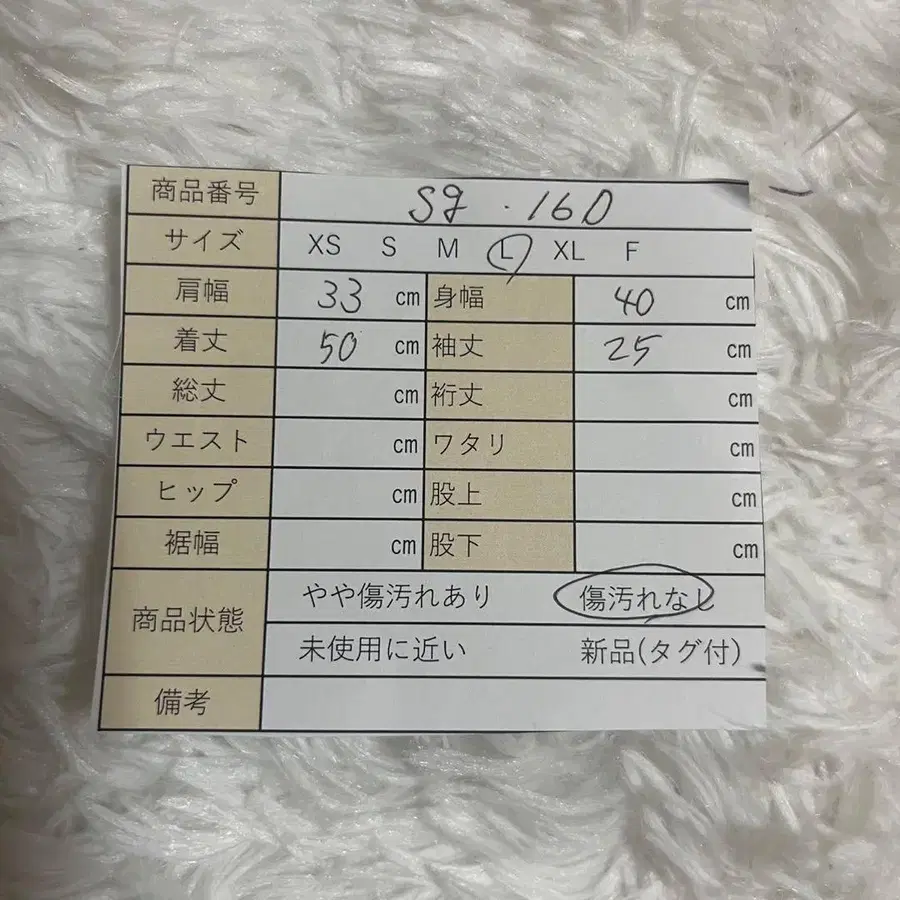 商品番号 Sg・16D
サイズ XS S M L XL F
肩幅 33 cm 身幅 40 cm
着丈 50 cm 袖丈 25 cm
総丈 cm 裄丈 cm
ウエスト cm ワタリ cm
ヒップ cm 股上 cm
裾幅 cm 股下 cm
商品状態 やや傷汚れあり 傷汚れなし
未使用に近い 新品(タグ付)
備考